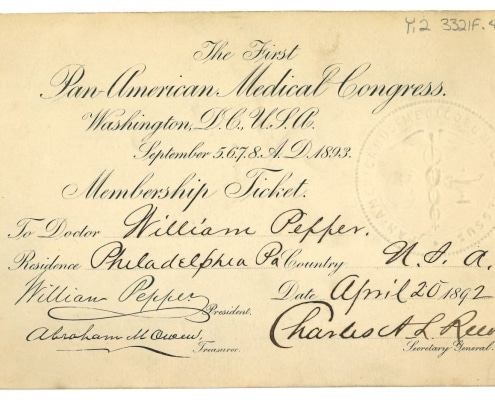 Y,2 3321F.
The First
Pan-American Medical Congress.
Washington, D.C., U.S.A.
September 5.6.7.8. A.D. 1893.
Membership Ticket.
To Doctor William Pepper.
Residence Philadelphia Pa Country U.S.a.
William Pepper President. Date April 20 1892
Abraham M Owen, Treasurer. Charles A L
Secretary General.